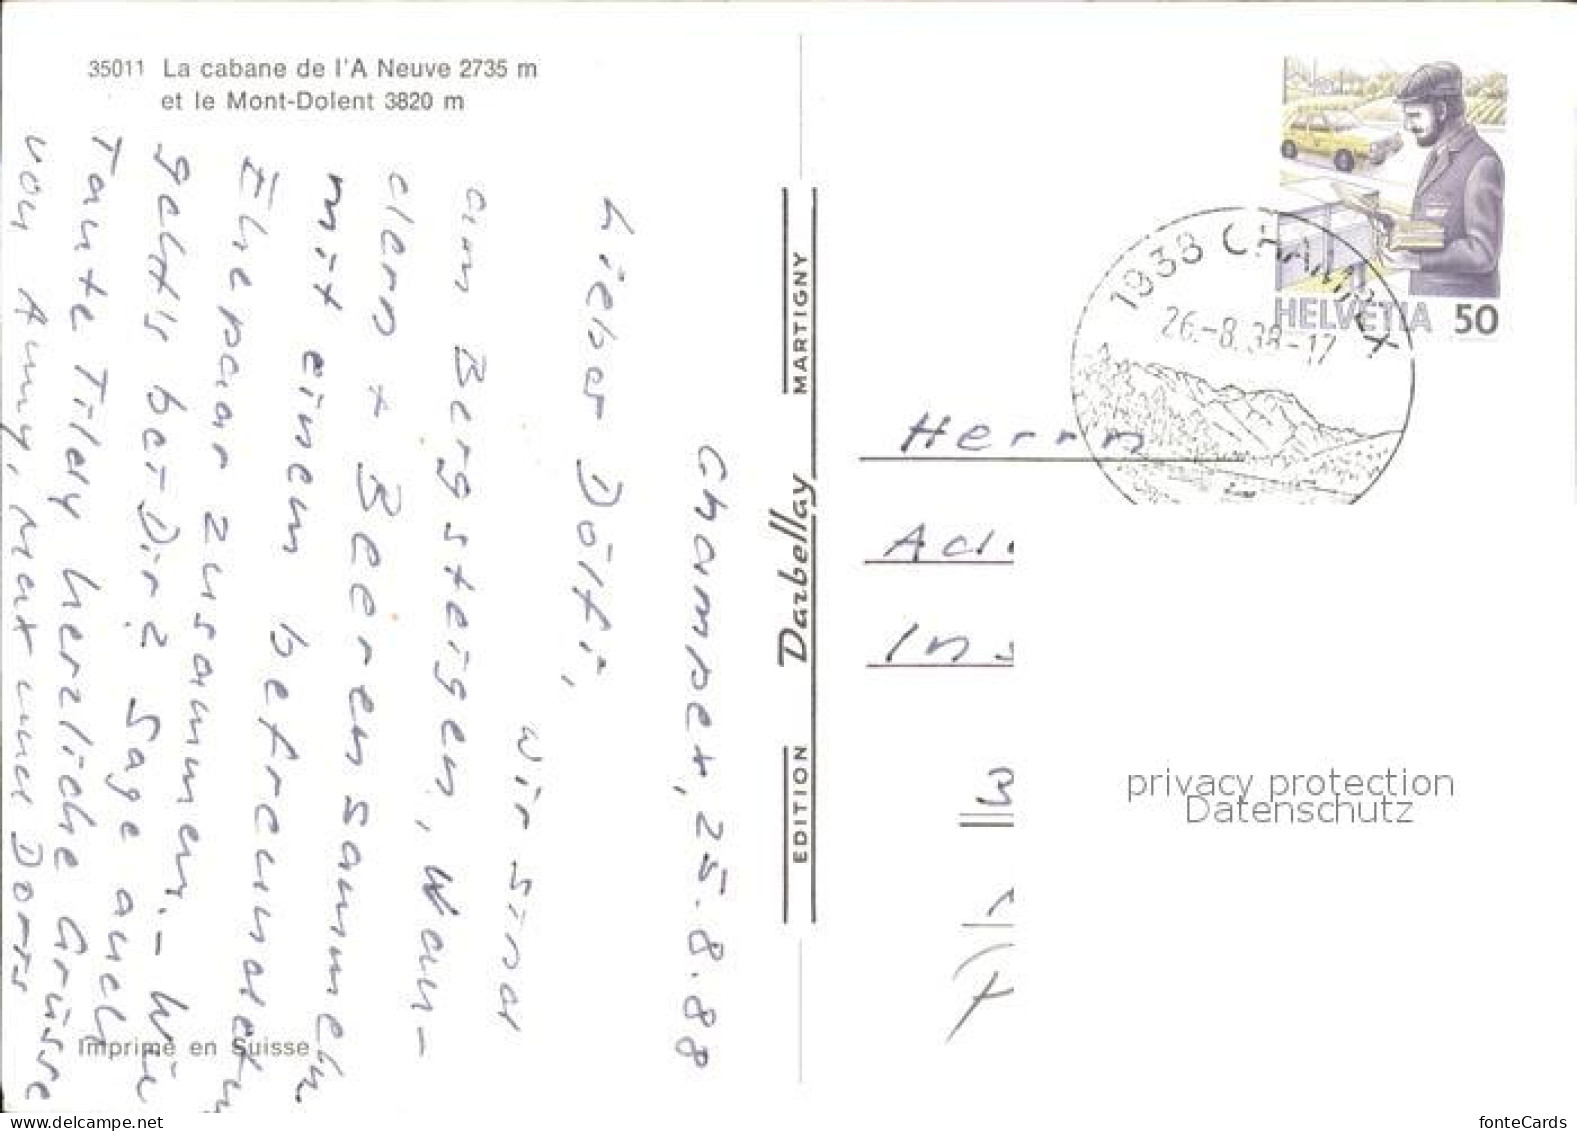 35011 La cabane de l'A Neuve 2735 m
et le Mont-Dolent 3820 m
Champex, 25.8.88
Lieber Dölfi,
Wir sind
am Bergsteigen, Wan-
dern + Beerensammeln
mit einem befreundeten
Ehepaar zusammen. – Wie
geht's bei Dir? Sage auch
Tante Tilly herzliche Grüsse
von Anny, Max und Doris
Imprimé en Suisse
EDITION Darbellay MARTIGNY
HELVETIA 50
1938 CHAMPEX
26.-8.88-17
Herrn
privacy protection
Datenschutz
www.delcampe.net
fonteCards